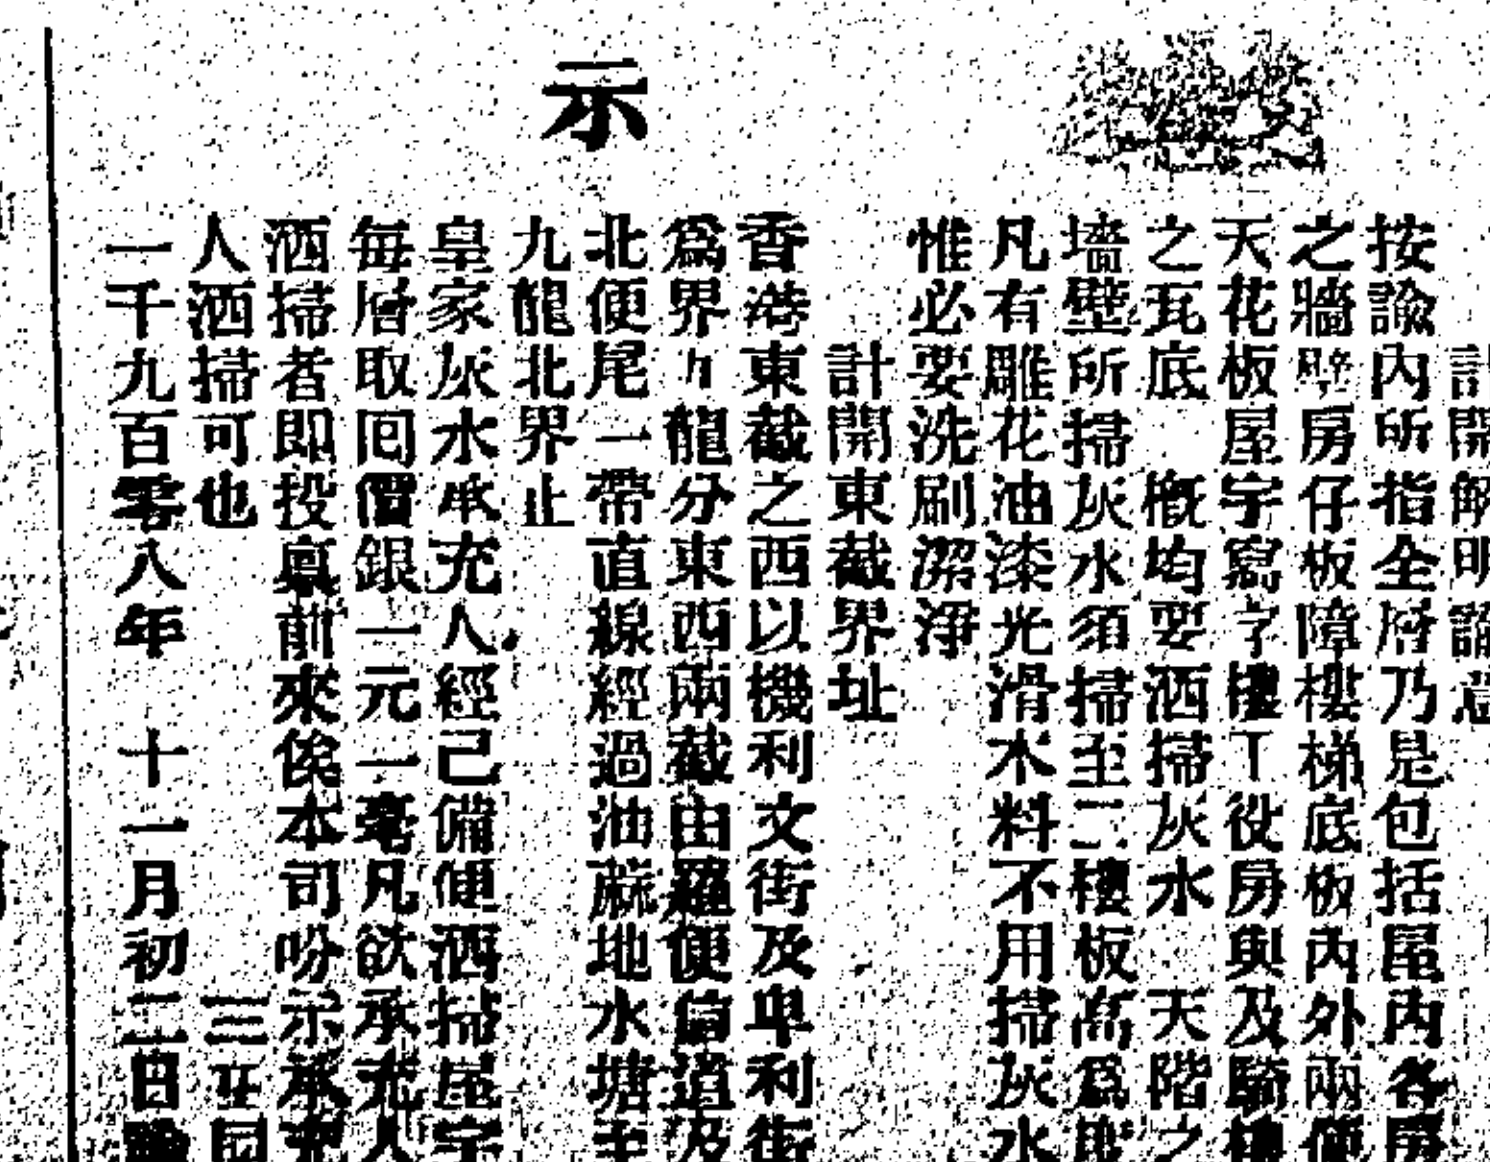 示
計開解明諭意
按諭內所指全層乃是包括屋內各房
之牆壁房仔板障樓梯底板內外兩便
天花板屋宇寫字樓丁役房與及騎樓
之瓦底 概均要洒掃灰水 天階之
墻壁所掃灰水須掃至二樓板高爲
凡有雕花油漆光滑木料不用掃灰水
惟必要洗刷潔淨
計開東截界址
香港東截之西以機利文街及卑利街
爲界九龍分東西兩截由羅便信道及
北便尾一帶直線經過油蔴地水塘至
九龍北界止
皇家灰水承充人經己備便洒掃屋宇
每層取囘價銀一元一毫凡欲承充人
洒掃者即投稟前來俟本司吩示承充
人洒掃可也
一千九百零八年 十一月初二日